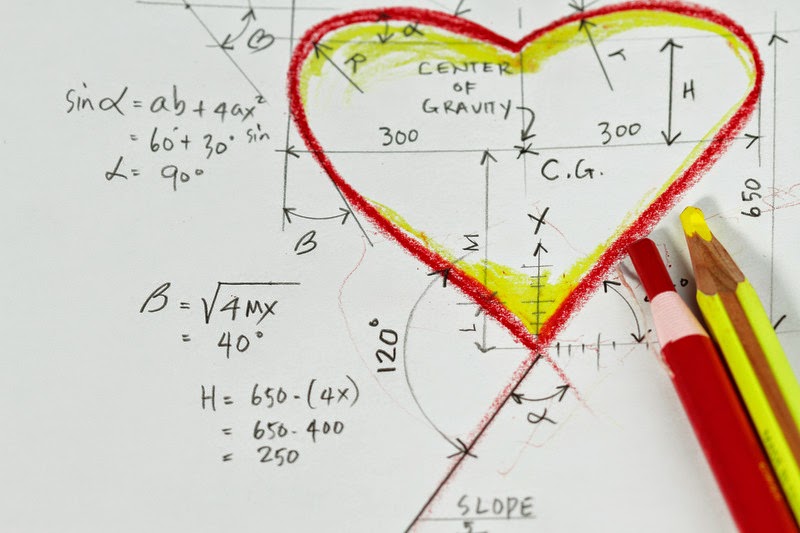 B
α
R
r
H
CENTER
OF
GRAVITY
sin α = ab + 4ax²
= 60° + 30° sin
α = 90°
300
300
C.G.
650
B
M
X
L
B = √4MX
= 40°
120°
H = 650 - (4X)
= 650 - 400
= 250
α
SLOPE